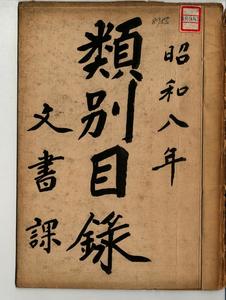 昭和八年
類別目錄
文書課